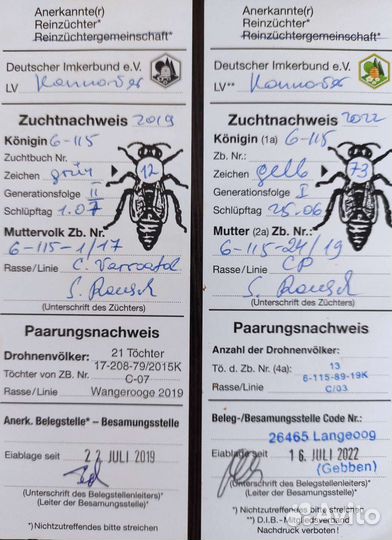 Anerkannte(r)
Reinzüchter*
Reinzüchtergemeinschaft*
Deutscher Imkerbund e.V.
LV Hannover
Zuchtnachweis 2019
Königin 6-115
Zuchtbuch Nr.
Zeichen grün 12
Generationsfolge II
Schlüpftag 1.07
Muttervolk Zb. Nr.
6-115-1/17
Rasse/Linie C.
(Unterschrift des Züchters)
Paarungsnachweis
Drohnenvölker: 21 Töchter
Töchter von ZB. Nr. 17-208-79/2015K
C-07
Rasse/Linie Wangerooge 2019
Anerk. Belegstelle* – Besamungsstelle
Eiablage seit 22 JULI 2019
(Unterschrift des Belegstellenleiters)*
(Leiter der Besamungsstelle)*
*) Nichtzutreffendes bitte streichen
Anerkannte(r)
Reinzüchter*
Reinzüchtergemeinschaft*
Deutscher Imkerbund e.V.
LV** Hannover
Zuchtnachweis 2022
Königin (1a) 6-115
Zb. Nr.:
Zeichen gelb 73
Generationsfolge I
Schlüpftag 25.06
Mutter (2a) Zb. Nr.:
6-115-24/19
Rasse/Linie CP
(Unterschrift des Züchters)
Paarungsnachweis
Anzahl der Drohnenvölker:
Tö. d. Zb. Nr. (4a): 13
6-115-89-19K
Rasse/Linie: C/03
Beleg-/Besamungsstelle Code Nr.:
26465 Langeoog
Eiablage seit 16. JULI 2022
(Gebben)
(Unterschrift des Belegstellenleiters)*
(Leiter der Besamungsstelle)*
*) Nichtzutreffendes bitte streichen
**) D.I.B.-Mitgliedsverband
Nachdruck verboten!
Avito